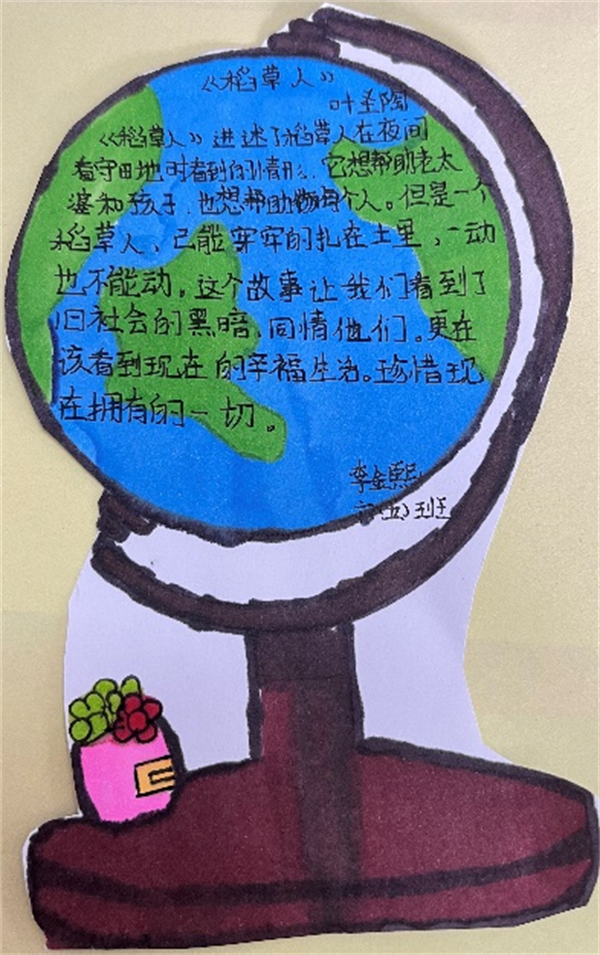 《稻草人》
叶圣陶
《稻草人》进述了稻草人在夜间
看守田地时看到的情什么,它想帮助老太
婆和孩子,也想帮助每个人。但是一个
稻草人、己能穿牢的扎在土里,一动
也不能动,这个故事让我们看到了
旧社会的黑暗、同情他们。更在
该看到现在的辛福生活。珍惜现
在拥有的一切。
李金熙
班